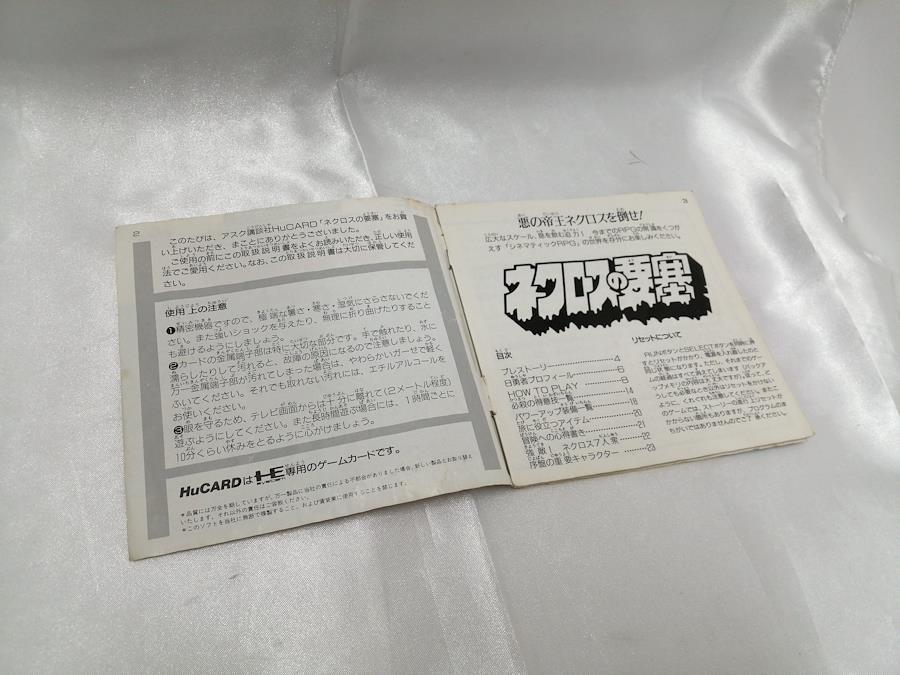 2
このたびは、アスク講談社HuCARD「ネクロスの要塞」をお買
い上げいただき、まことにありがとうございました。
ご使用の前にこの取扱説明書をよくお読みいただき、正しい使用
法でご愛用ください。なお、この取扱説明書は大切に保管してくだ
さい。
使用上の注意
❶精密機器ですので、極端な暑さ・寒さ・湿気にさらさないでくだ
さい。また強いショックを与えたり、無理に折り曲げたりすること
も避けるようにしましょう。
❷カードの金属端子部は特に大切な部分です。手で触れたり、水に
濡らしたりして汚れると、故障の原因になるので注意しましょう。
万一金属端子部が汚れてしまった場合は、やわらかいガーゼで軽く
ふいてください。それでも取れない汚れには、エチルアルコールを
お使いください。
❸眼を守るため、テレビ画面からは十分に離れて(2メートル程度)
遊ぶようにしてください。また長時間遊ぶ場合には、1時間ごとに
10分くらい休みをとるように心がけましょう。
HuCARDはHE専用のゲームカードです。
*品質には万全を期していますが、万一製品に当社の責任による不都合がありました場合、新しい製品とお取り替え
いたします。それ以外の責任はご容赦ください。
*このソフトを当社に無断で複製すること、および賃貸業に使用することを禁じます。
3
悪の帝王ネクロスを倒せ!
広大なスケール、息を飲む迫力! 今までのRPGの常識をくつが
えす「シネマティックRPG」の世界を存分にお楽しみください。
ネクロスの要塞
目次
プレストーリー 4
8勇者プロフィール 6
HOW TO PLAY 8
必殺の得意技一覧 14
パワーアップ装備一覧 18
旅に役立つアイテム 20
冒険への心得書き 21
強敵! ネクロス7人衆 22
序盤の重要キャラクター 23
リセットについて
RUNボタンとSELECTボタンを同時に押
すとリセットがかかり、電源を入れ直したのと
同じ状態になります。ただし、それまでのゲー
ムの経過はすべて消えてしまいます(バックア
ップメモリの内容は大丈夫ですが)。誤って、ど
うしても必要なとき以外はリセットをかけない
ように、くれぐれも注意してください。またこ
のゲームでは、ストーリーの進行上リセットが
かからない箇所もありますが、プログラムのま
ちがいではありませんのでご了承ください。